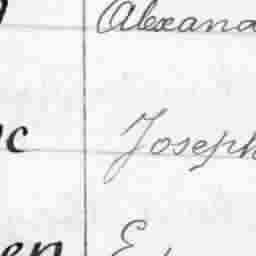 Alexand
c Joseph
en E